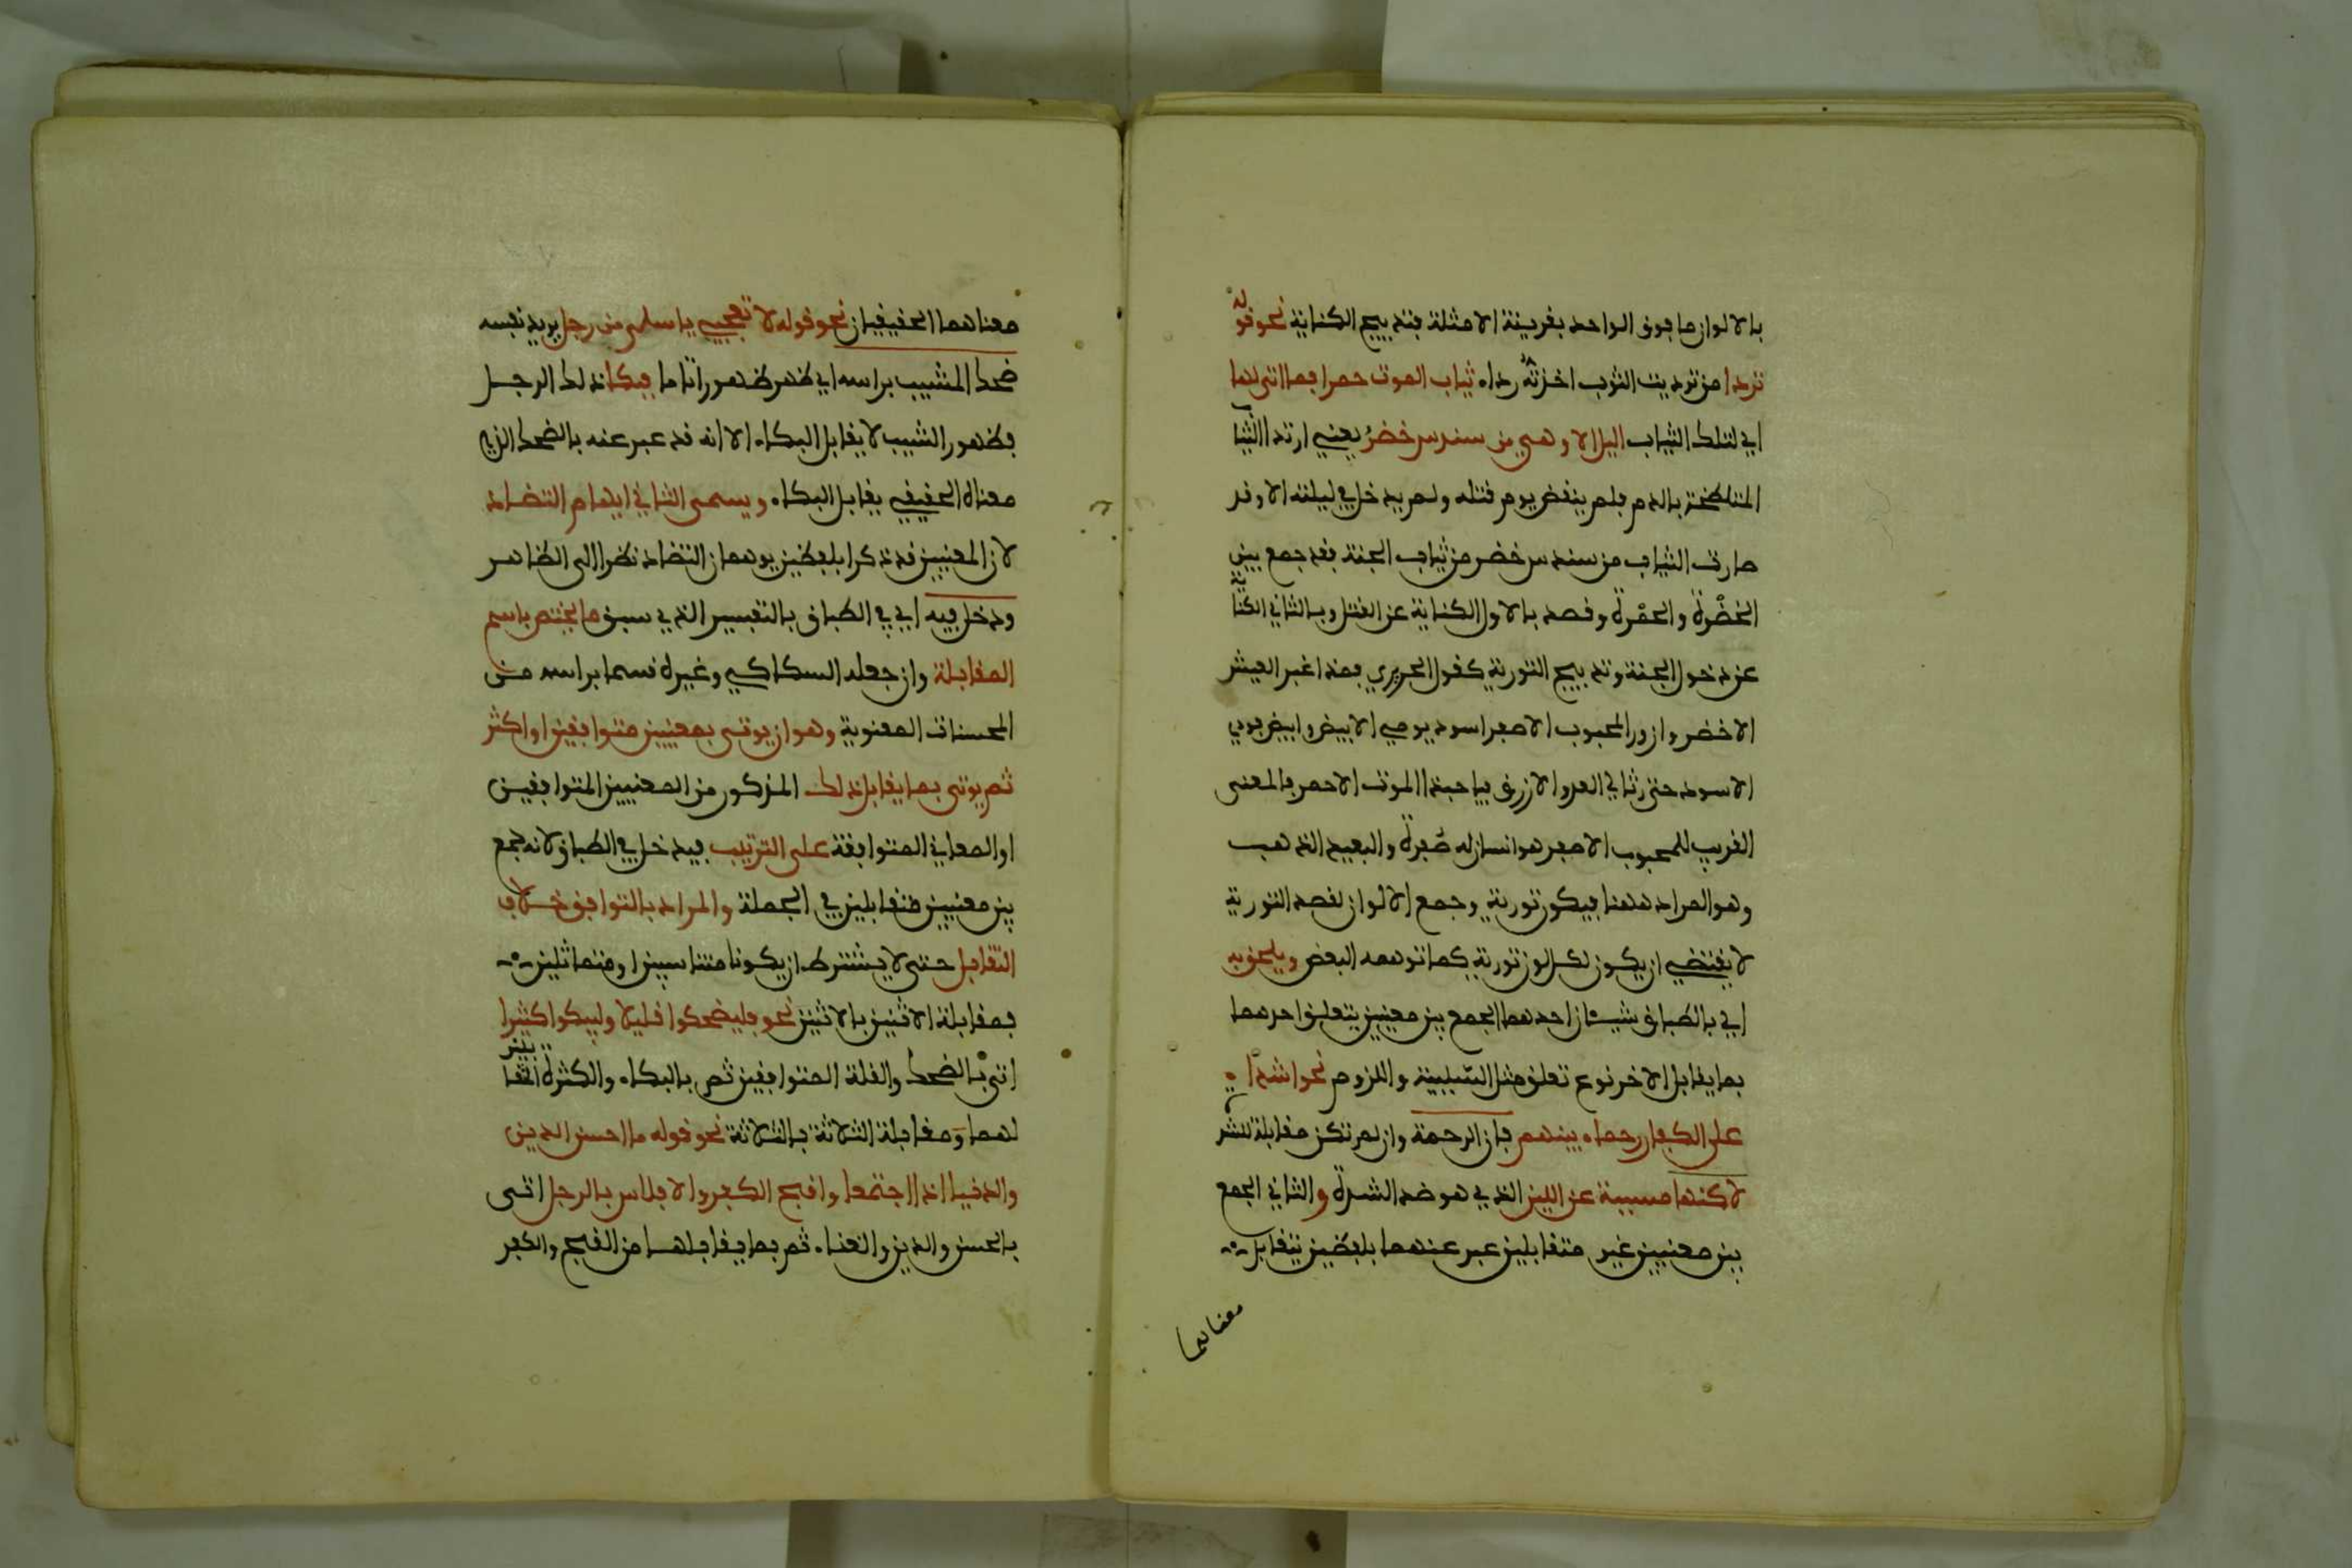 بالالوان ما فوق الواحد بقرينة الامثلة فتدبيج الكناية نحو قوله
تردا من ترديت الثوب اخذته رداء ثياب الموت حمرا فما اتى لها
اي لتلك الثياب اليل الا وهي من سندس خضر يعني ارتدا الثياب
المتلطخة بالدم فلم ينقض يوم قتله ولم يدخل في ليلته الا وقد
صارت الثياب من سندس خضر من ثياب الجنة فقد جمع بين
الخضرة والحمرة وقصد بالاول الكناية عن القتل وبالثاني الكناية
عن دخول الجنة وتدبيج التورية كقول الحريري فمذ اغبر العيش
الاخضر وازور المحبوب الاصفر اسود يومي الابيض وابيض فودي
الاسود حتى رثا لي العدو الازرق فيا حبذا الموت الاحمر فالمعنى
القريب للمحبوب الاصفر هو انسان له صفرة والبعيد الذهب
وهو المراد ههنا فيكون تورية وجمع الالوان لقصد التورية
لا يقتضي ان يكون لكل لون تورية كما توهمه البعض ويلحق به
اي بالطباق شيئان احدهما الجمع بين معنيين يتعلق احدهما
بما يقابل الاخر نوع تعلق مثل السببية واللزوم نحو اشداء
على الكفار رحماء بينهم فان الرحمة وان لم تكن مقابلة للشدة
لاكنها مسببة عن اللين الذي هو ضد الشدة والثاني الجمع
بين معنيين غير متقابلين عبر عنهما بلفظين يتقابل
معناهما
معناهما الحقيقيان نحو قوله لا تعجبي يا سلمى من رجل يريد نفسه
ضحك المشيب براسه اي ظهر ظهورا تاما فبكا ذلك الرجل
فظهور الشيب لا يقابل البكاء الا انه قد عبر عنه بالضحك الذي
معناه الحقيقي يقابل البكاء ويسمى الثاني ايهام التضاد
لان المعنيين قد ذكرا بلفظين يوهمان التضاد نظرا الى الظاهر
ودخل فيه اي في الطباق بالتفسير الذي سبق ما يختص باسم
المقابلة وان جعله السكاكي وغيره قسما براسه من
المحسنات المعنوية وهو ان يوتى بمعنيين متوافقين او اكثر
ثم يوتى بما يقابل ذلك المذكور من المعنيين المتوافقين
او المعاني المتوافقة على الترتيب فيدخل في الطباق لانه جمع
بين معنيين متقابلين في الجملة والمراد بالتوافق خلاف
التقابل حتى لا يشترط ان يكونا متناسبين او متماثلين
فمقابلة الاثنين بالاثنين نحو فليضحكوا قليلا وليبكوا كثيرا
اتى بالضحك والقلة المتوافقين ثم بالبكاء والكثرة المتقابلين
لهما ومقابلة الثلاثة بالثلاثة نحو قوله ما احسن الدين
والدنيا اذا اجتمعا واقبح الكفر والافلاس بالرجل اتى
بالحسن والدين والغناء ثم بما يقابلها من القبح والكفر